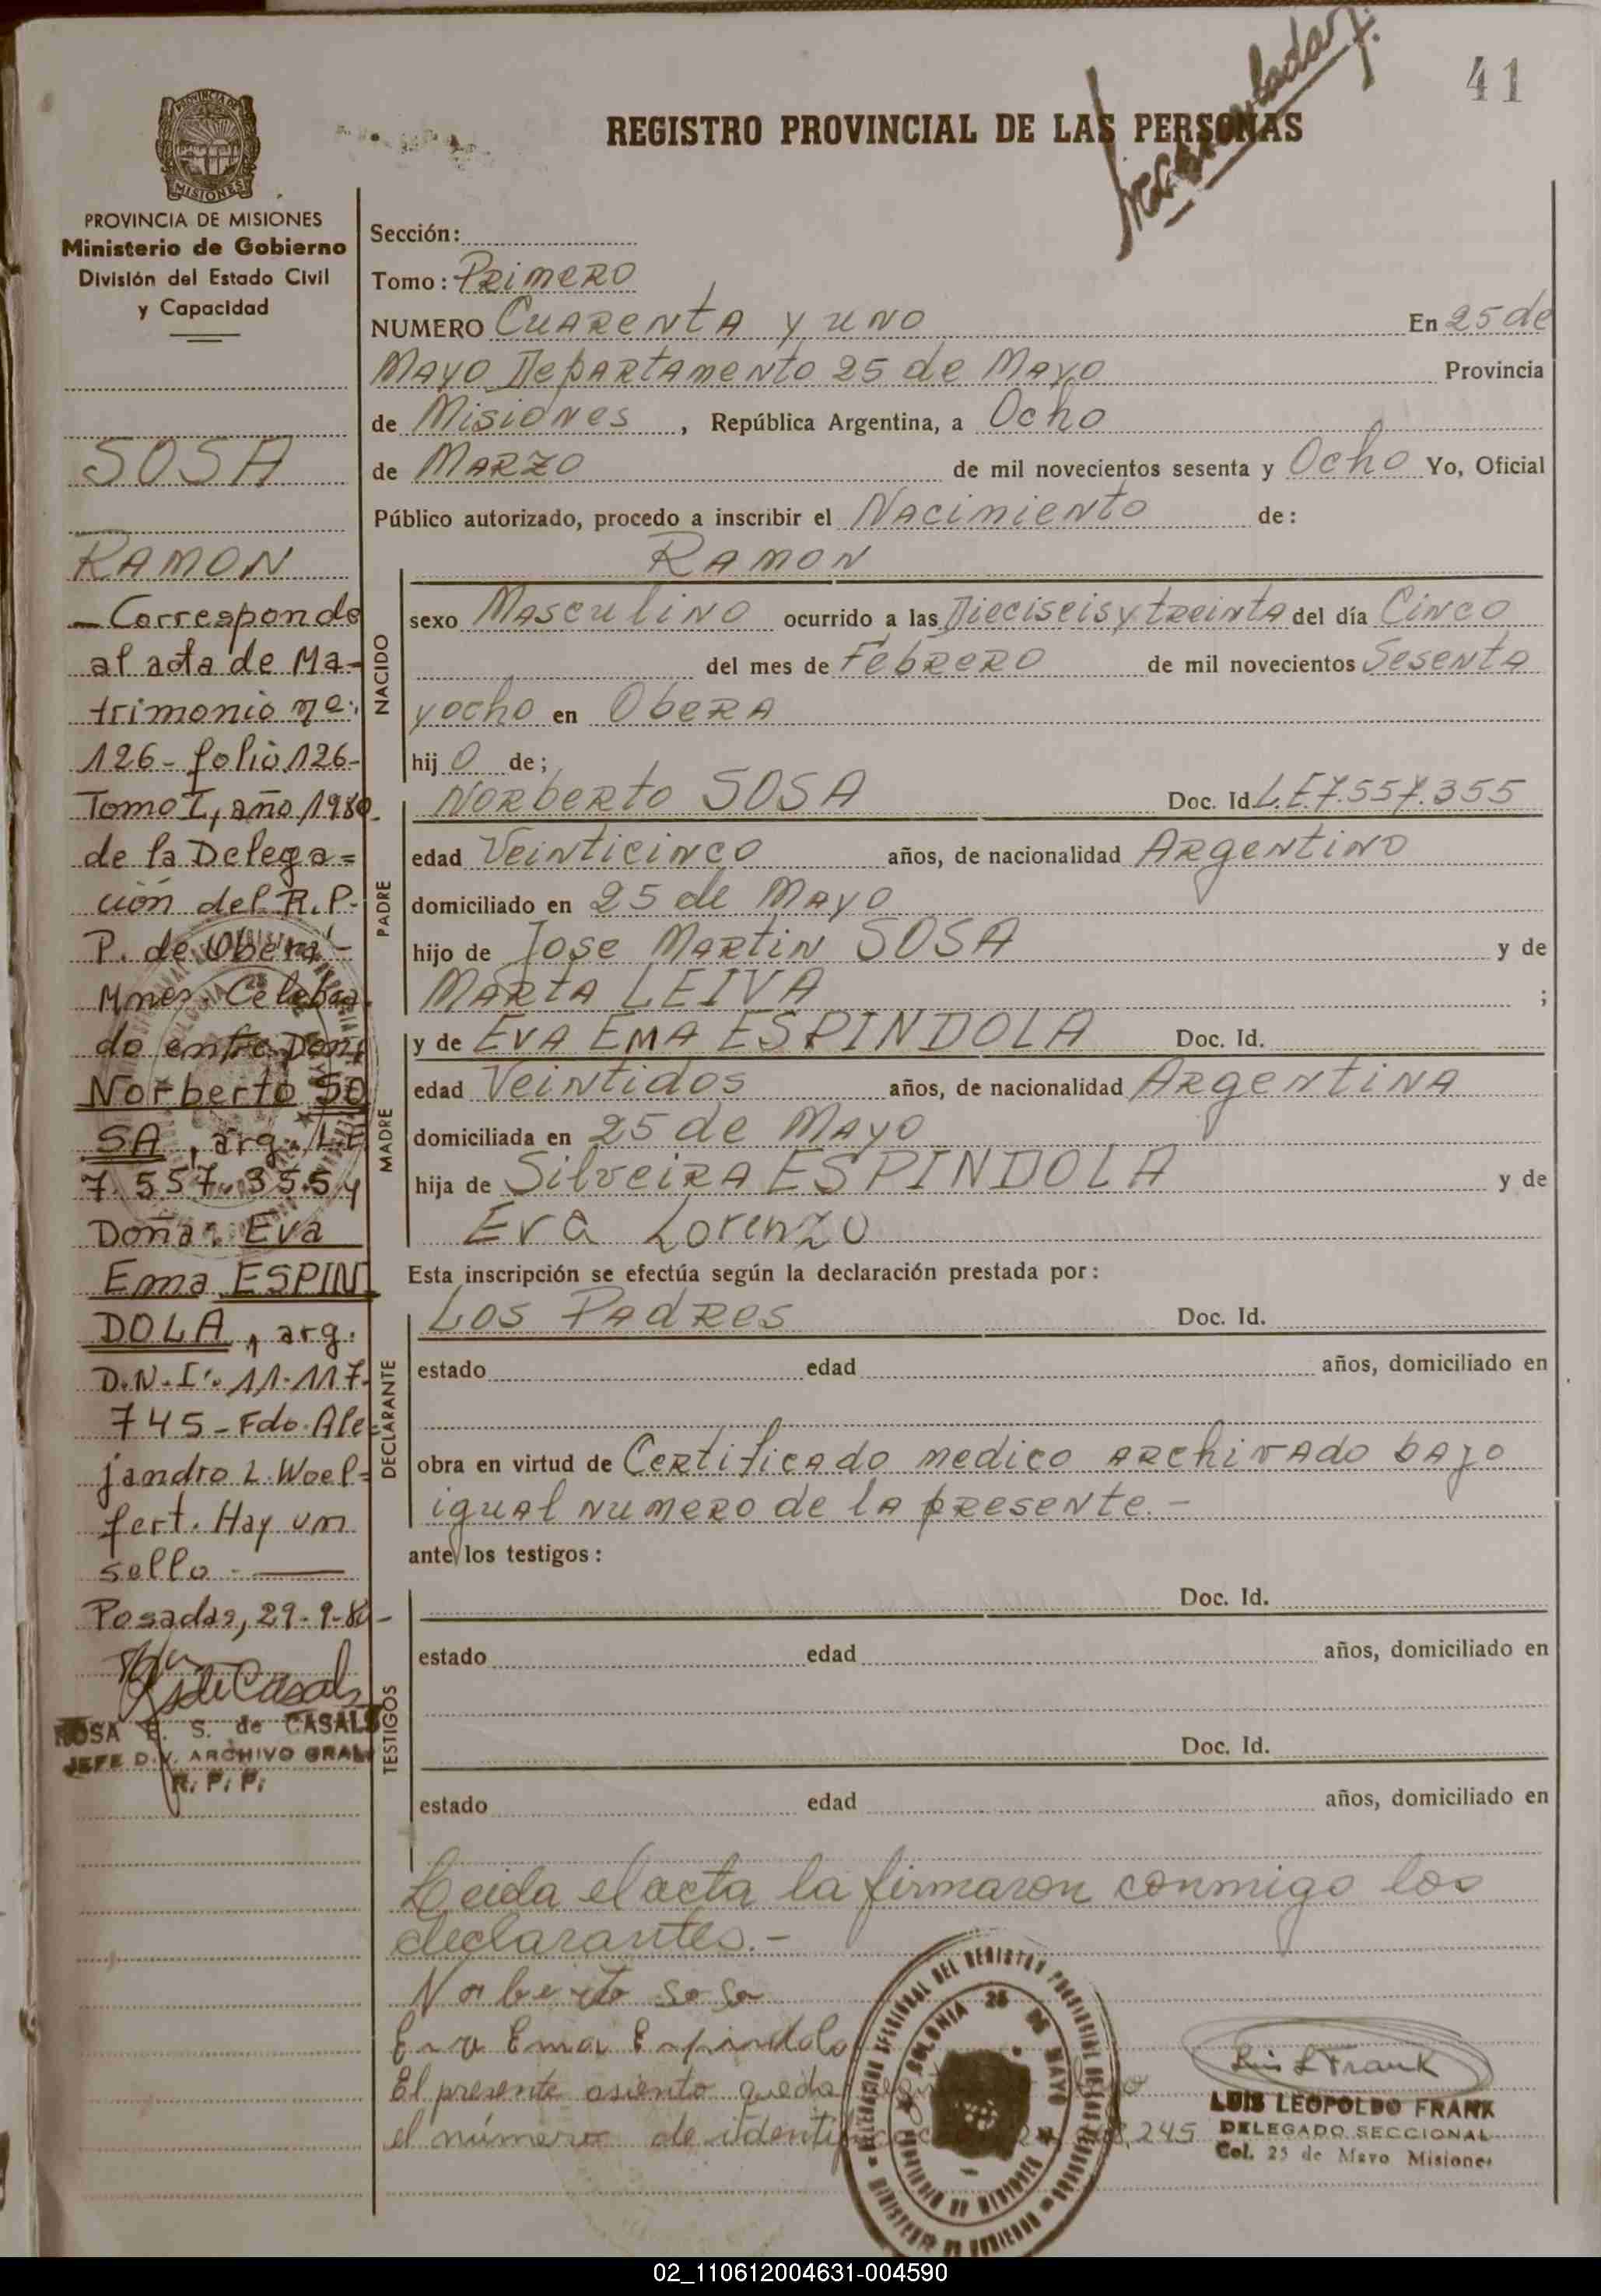 41
REGISTRO PROVINCIAL DE LAS PERSONAS
PROVINCIA DE MISIONES
Ministerio de Gobierno
División del Estado Civil
y Capacidad
SOSA
RAMON
- Corresponde
al acta de Ma-
trimonio nº:
126- folio 126-
Tomo I, año 1980.
de la Delega=
ción del R.P.
P. de Oberá-
Mnes. Celebra
do entre Don:
Norberto SO
SA, arg. L.E
7.557.355 y
Doña: Eva
Ema ESPIN
DOLA, arg.
D.N.I: 11.117.
745- Fdo. Ale=
jandro L. Woel=
fert. Hay un
sello.
Posadas, 29-9-80-
ROSA E. S. de CASALS
JEFE DIV. ARCHIVO GRAL.
R. P. P.
Sección:
Tomo: Primero
NUMERO Cuarenta y uno En 25 de
Mayo Departamento 25 de Mayo Provincia
de Misiones, República Argentina, a Ocho
de Marzo de mil novecientos sesenta y Ocho Yo, Oficial
Público autorizado, procedo a inscribir el Nacimiento de:
Ramon
NACIDO
sexo Masculino ocurrido a las Dieciseis y treinta del día Cinco
del mes de Febrero de mil novecientos Sesenta
y ocho en Obera
hijo de;
PADRE
Norberto SOSA Doc. Id. L.E 7.557.355
edad Veinticinco años, de nacionalidad Argentino
domiciliado en 25 de Mayo
hijo de Jose Martin SOSA y de
Marta LEIVA ;
MADRE
y de EVA EMA ESPINDOLA Doc. Id.
edad Veintidos años, de nacionalidad Argentina
domiciliada en 25 de Mayo
hija de Silveira ESPINDOLA y de
Eva Lorenzo
Esta inscripción se efectúa según la declaración prestada por:
DECLARANTE
Los Padres Doc. Id.
estado edad años, domiciliado en
obra en virtud de Certificado medico archivado bajo
igual numero de la presente.-
ante los testigos:
TESTIGOS
Doc. Id.
estado edad años, domiciliado en
Doc. Id.
estado edad años, domiciliado en
Leida el acta la firmaron conmigo los
declarantes.-
Norberto Sosa
Eva Ema Espindola
El presente asiento queda
el número de identi 245
COLONIA 25 DE MAYO
Luis L Frank
LUIS LEOPOLDO FRANK
DELEGADO SECCIONAL
Col. 25 de Mayo Misiones
02_110612004631-004590